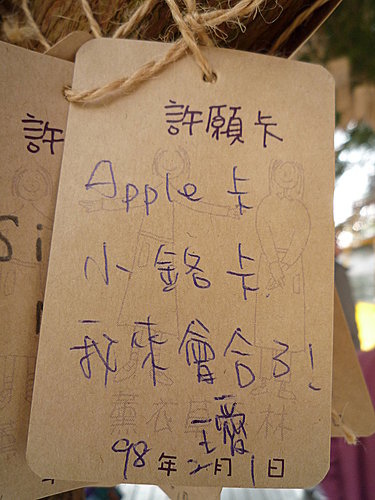 許願卡
Apple 卡
小銘卡
我來會合了!
薰衣草森林
璦
98年2月1日
許
Si